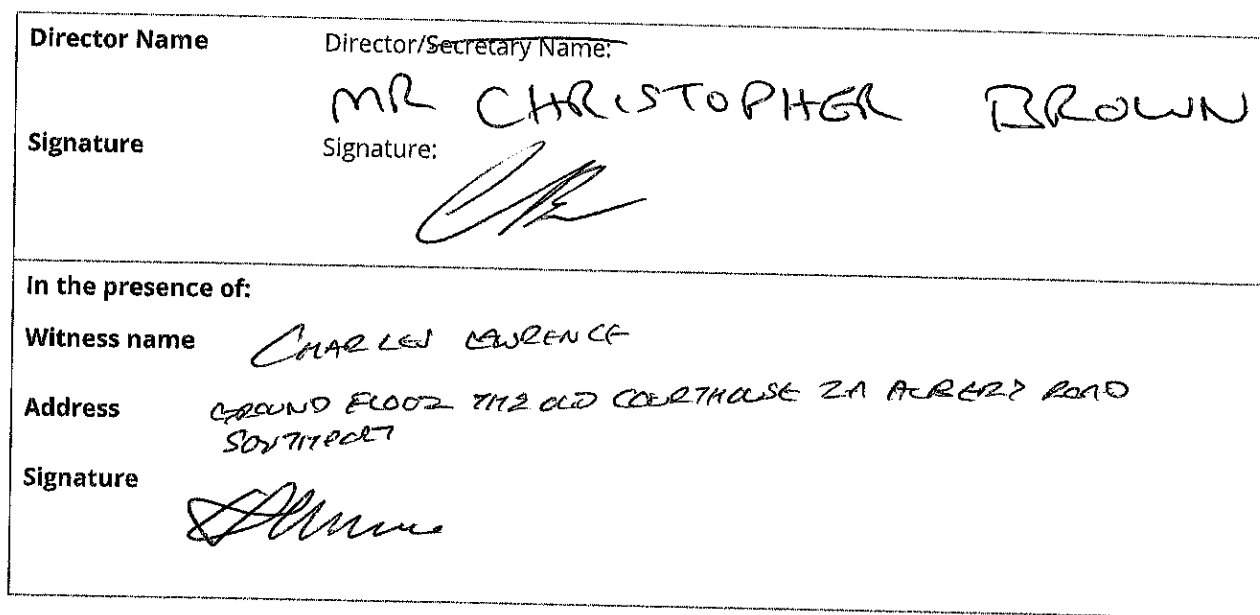 Director Name Director/Secretary Name:
MR CHRISTOPHER BROWN
Signature Signature:
In the presence of:
Witness name CHARLES LAWRENCE
Address GROUND FLOOR THE OLD COURTHOUSE 2A ALBERT ROAD
SOUTHPORT
Signature